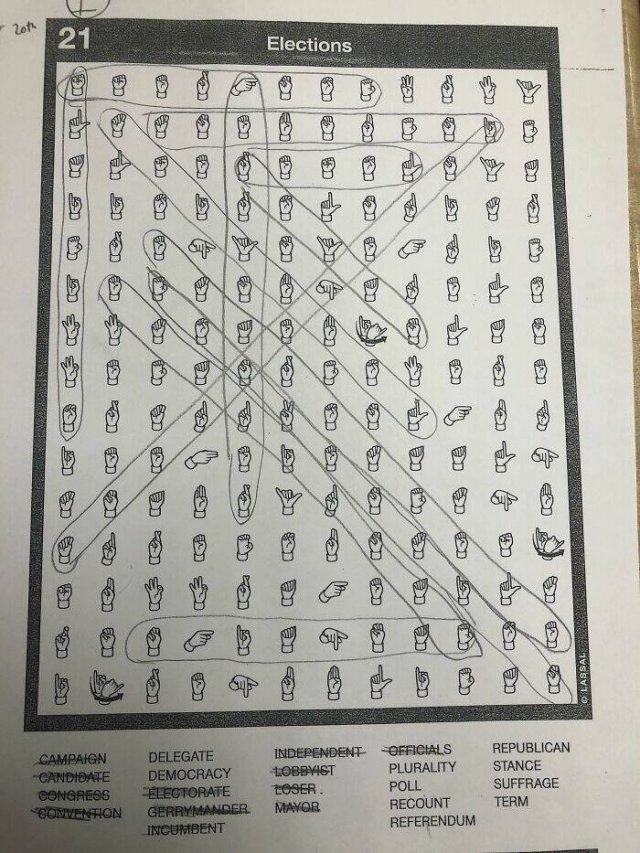 20th
21
Elections
CAMPAIGN DELEGATE INDEPENDENT OFFICIALS REPUBLICAN
CANDIDATE DEMOCRACY LOBBYIST PLURALITY STANCE
CONGRESS ELECTORATE LOSER POLL SUFFRAGE
CONVENTION GERRYMANDER MAYOR RECOUNT TERM
INCUMBENT REFERENDUM
© LASSAL